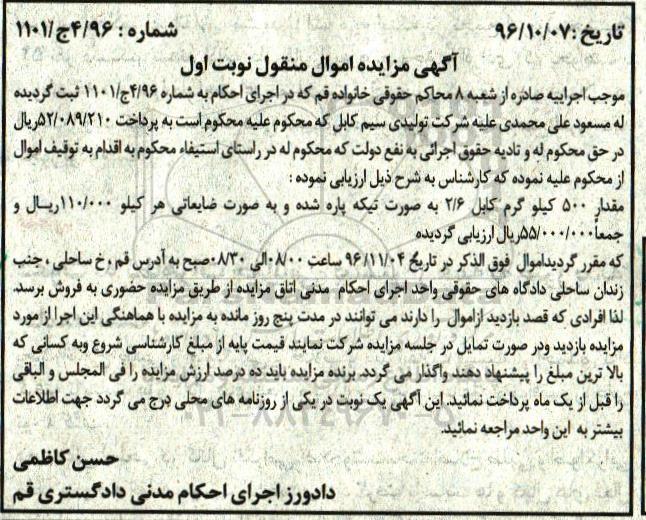 تاریخ: ۹۶/۱۰/۰۷ شماره : ۴/۹۶ج/۱۱۰۱
آگهی مزایده اموال منقول نوبت اول
موجب اجراییه صادره از شعبه ۸ محاکم حقوقی خانواده قم که در اجرای احکام به شماره ۴/۹۶ج/۱۱۰۱ ثبت گردیده
له مسعود علی محمدی علیه شرکت تولیدی سیم کابل که محکوم علیه محکوم است به پرداخت ۵۲/۰۸۹/۲۱۰ریال
در حق محکوم له و تادیه حقوق اجرائی به نفع دولت که محکوم له در راستای استیفاء محکوم به اقدام به توقیف اموال
از محکوم علیه نموده که کارشناس به شرح ذیل ارزیابی نموده :
مقدار ۵۰۰ کیلو گرم کابل ۲/۶ به صورت تیکه پاره شده و به صورت ضایعاتی هر کیلو ۱۱۰/۰۰۰ریال و
جمعاً ۵۵/۰۰۰/۰۰۰ریال ارزیابی گردیده
که مقرر گردیداموال فوق الذکر در تاریخ ۹۶/۱۱/۰۴ ساعت ۰۸/۰۰الی ۰۸/۳۰صبح به آدرس قم ، خ ساحلی ، جنب
زندان ساحلی دادگاه های حقوقی واحد اجرای احکام مدنی اتاق مزایده از طریق مزایده حضوری به فروش برسد.
لذا افرادی که قصد بازدید ازاموال را دارند می توانند در مدت پنج روز مانده به مزایده با هماهنگی این اجرا از مورد
مزایده بازدید ودر صورت تمایل در جلسه مزایده شرکت نمایند قیمت پایه از مبلغ کارشناسی شروع وبه کسانی که
بالا ترین مبلغ را پیشنهاد دهند واگذار می گردد. برنده مزایده باید ده درصد ارزش مزایده را فی المجلس و الباقی
را قبل از یک ماه پرداخت نمائید. این آگهی یک نوبت در یکی از روزنامه های محلی درج می گردد جهت اطلاعات
بیشتر به این واحد مراجعه نمائید.
حسن کاظمی
دادورز اجرای احکام مدنی دادگستری قم